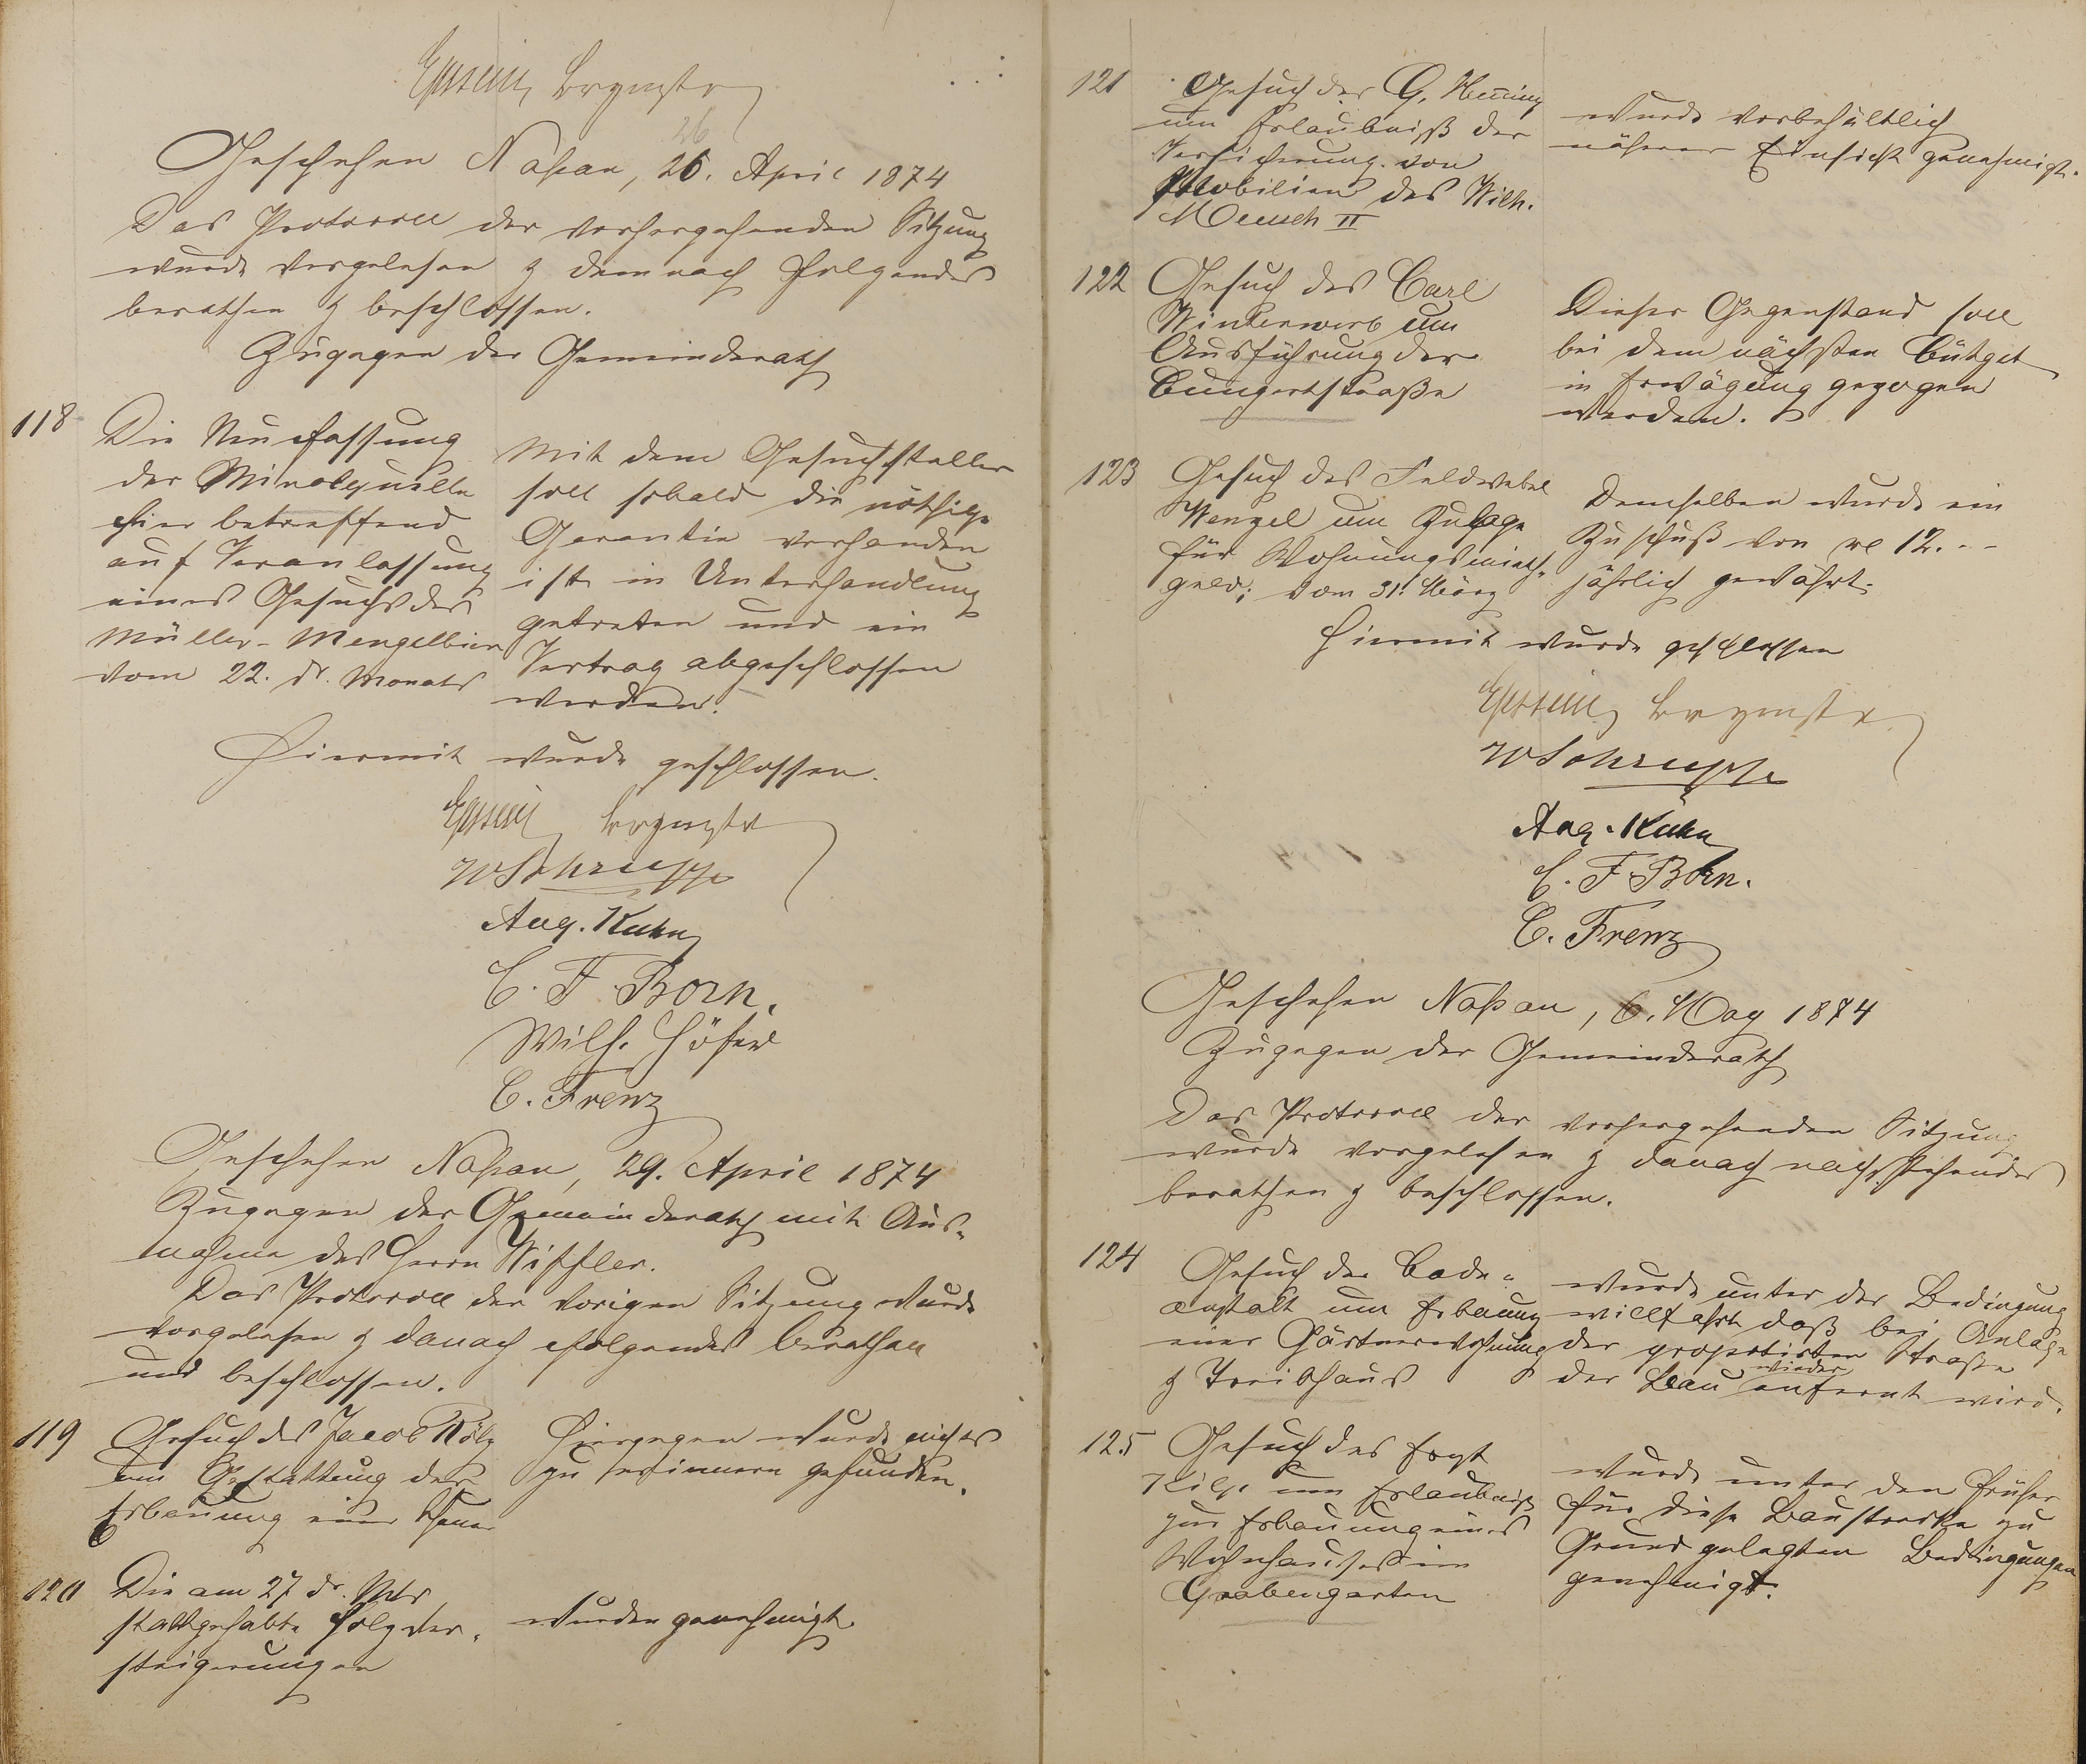 Epstein, Brgmstr
26
Geschehen Naßau, 26. April 1874
Das Protocoll der vorhergehenden Sitzung
wurde vorgelesen & demnach Folgendes
berathen & beschlossen.
Zugegen der Gemeinderath
118
Die Neufassung
der Mineralquelle
hier betreffend
auf Veranlassung
eines Gesuchs des
Müller-Mengelbier
vom 22. ds. Monats
Mit dem Gesuchsteller
soll sobald die nöthige
Garantie vorhanden
ist in Unterhandlung
getreten und ein
Vertrag abgeschlossen
werden.
Hiermit wurde geschlossen.
Epstein, Brgmstr
W Schrupp
Aug. Kuhn
C. F. Born.
Wilh. Höfer
C. Frenz
Geschehen Naßau, 29. April 1874
Zugegen der Gemeinderath mit Aus-
nahme des Herrn
Das Protocoll der vorigen Sitzung wurde
vorgelesen & danach folgendes berathen
und beschlossen.
119
Gesuch des Jacob
um Gestattung der
Erbauung einer
Hiergegen wurde nichts
zu erinnern gefunden.
120
Die am 27 ds. Mts
stattgehabte Holzver-
steigerungen
wurden genehmigt
121
Gesuch des G. Henning
um Erlaubniß der
Versicherung von
Mobilien des Wilh.
Mensch II
wurde vorbehältlich
näherer Einsicht genehmigt.
122
Gesuch des Carl
Winterwerb um
Ausführung der
Bungertstraße
Dieser Gegenstand soll
bei dem nächsten Bütget
in Erwägung gezogen
werden.
123
Gesuch des Feldwebel
Wenzel um Zulage
für Wohnungsmieth-
geld; vom 31. März
Demselben wurde ein
Zuschuß von 12.--
jährlich gewährt.
Hiermit wurde geschlossen
Epstein, Brgmstr
W Schrupp
Aug. Kuhn
C. F. Born.
C. Frenz
Geschehen Naßau, 6. May 1874
Zugegen der Gemeinderath
Das Protocoll der vorhergehenden Sitzung
wurde vorgelesen & danach nachstehendes
berathen & beschlossen.
124
Gesuch der Bade-
anstalt um Erbauung
einer Gärtnerwohnung
& Treibhaus
wurde unter der Bedingung
willfahrt daß bei Anlage
der projectirten Straße
der Bau wieder enfernt wird.
125
Gesuch des
um Erlaubniß
zur Erbauung eines
Wohnhauses im
Grabengarten
wurde unter den früher
für diese Baustrecke zu
Grund gelegten Bedingungen
genehmigt.